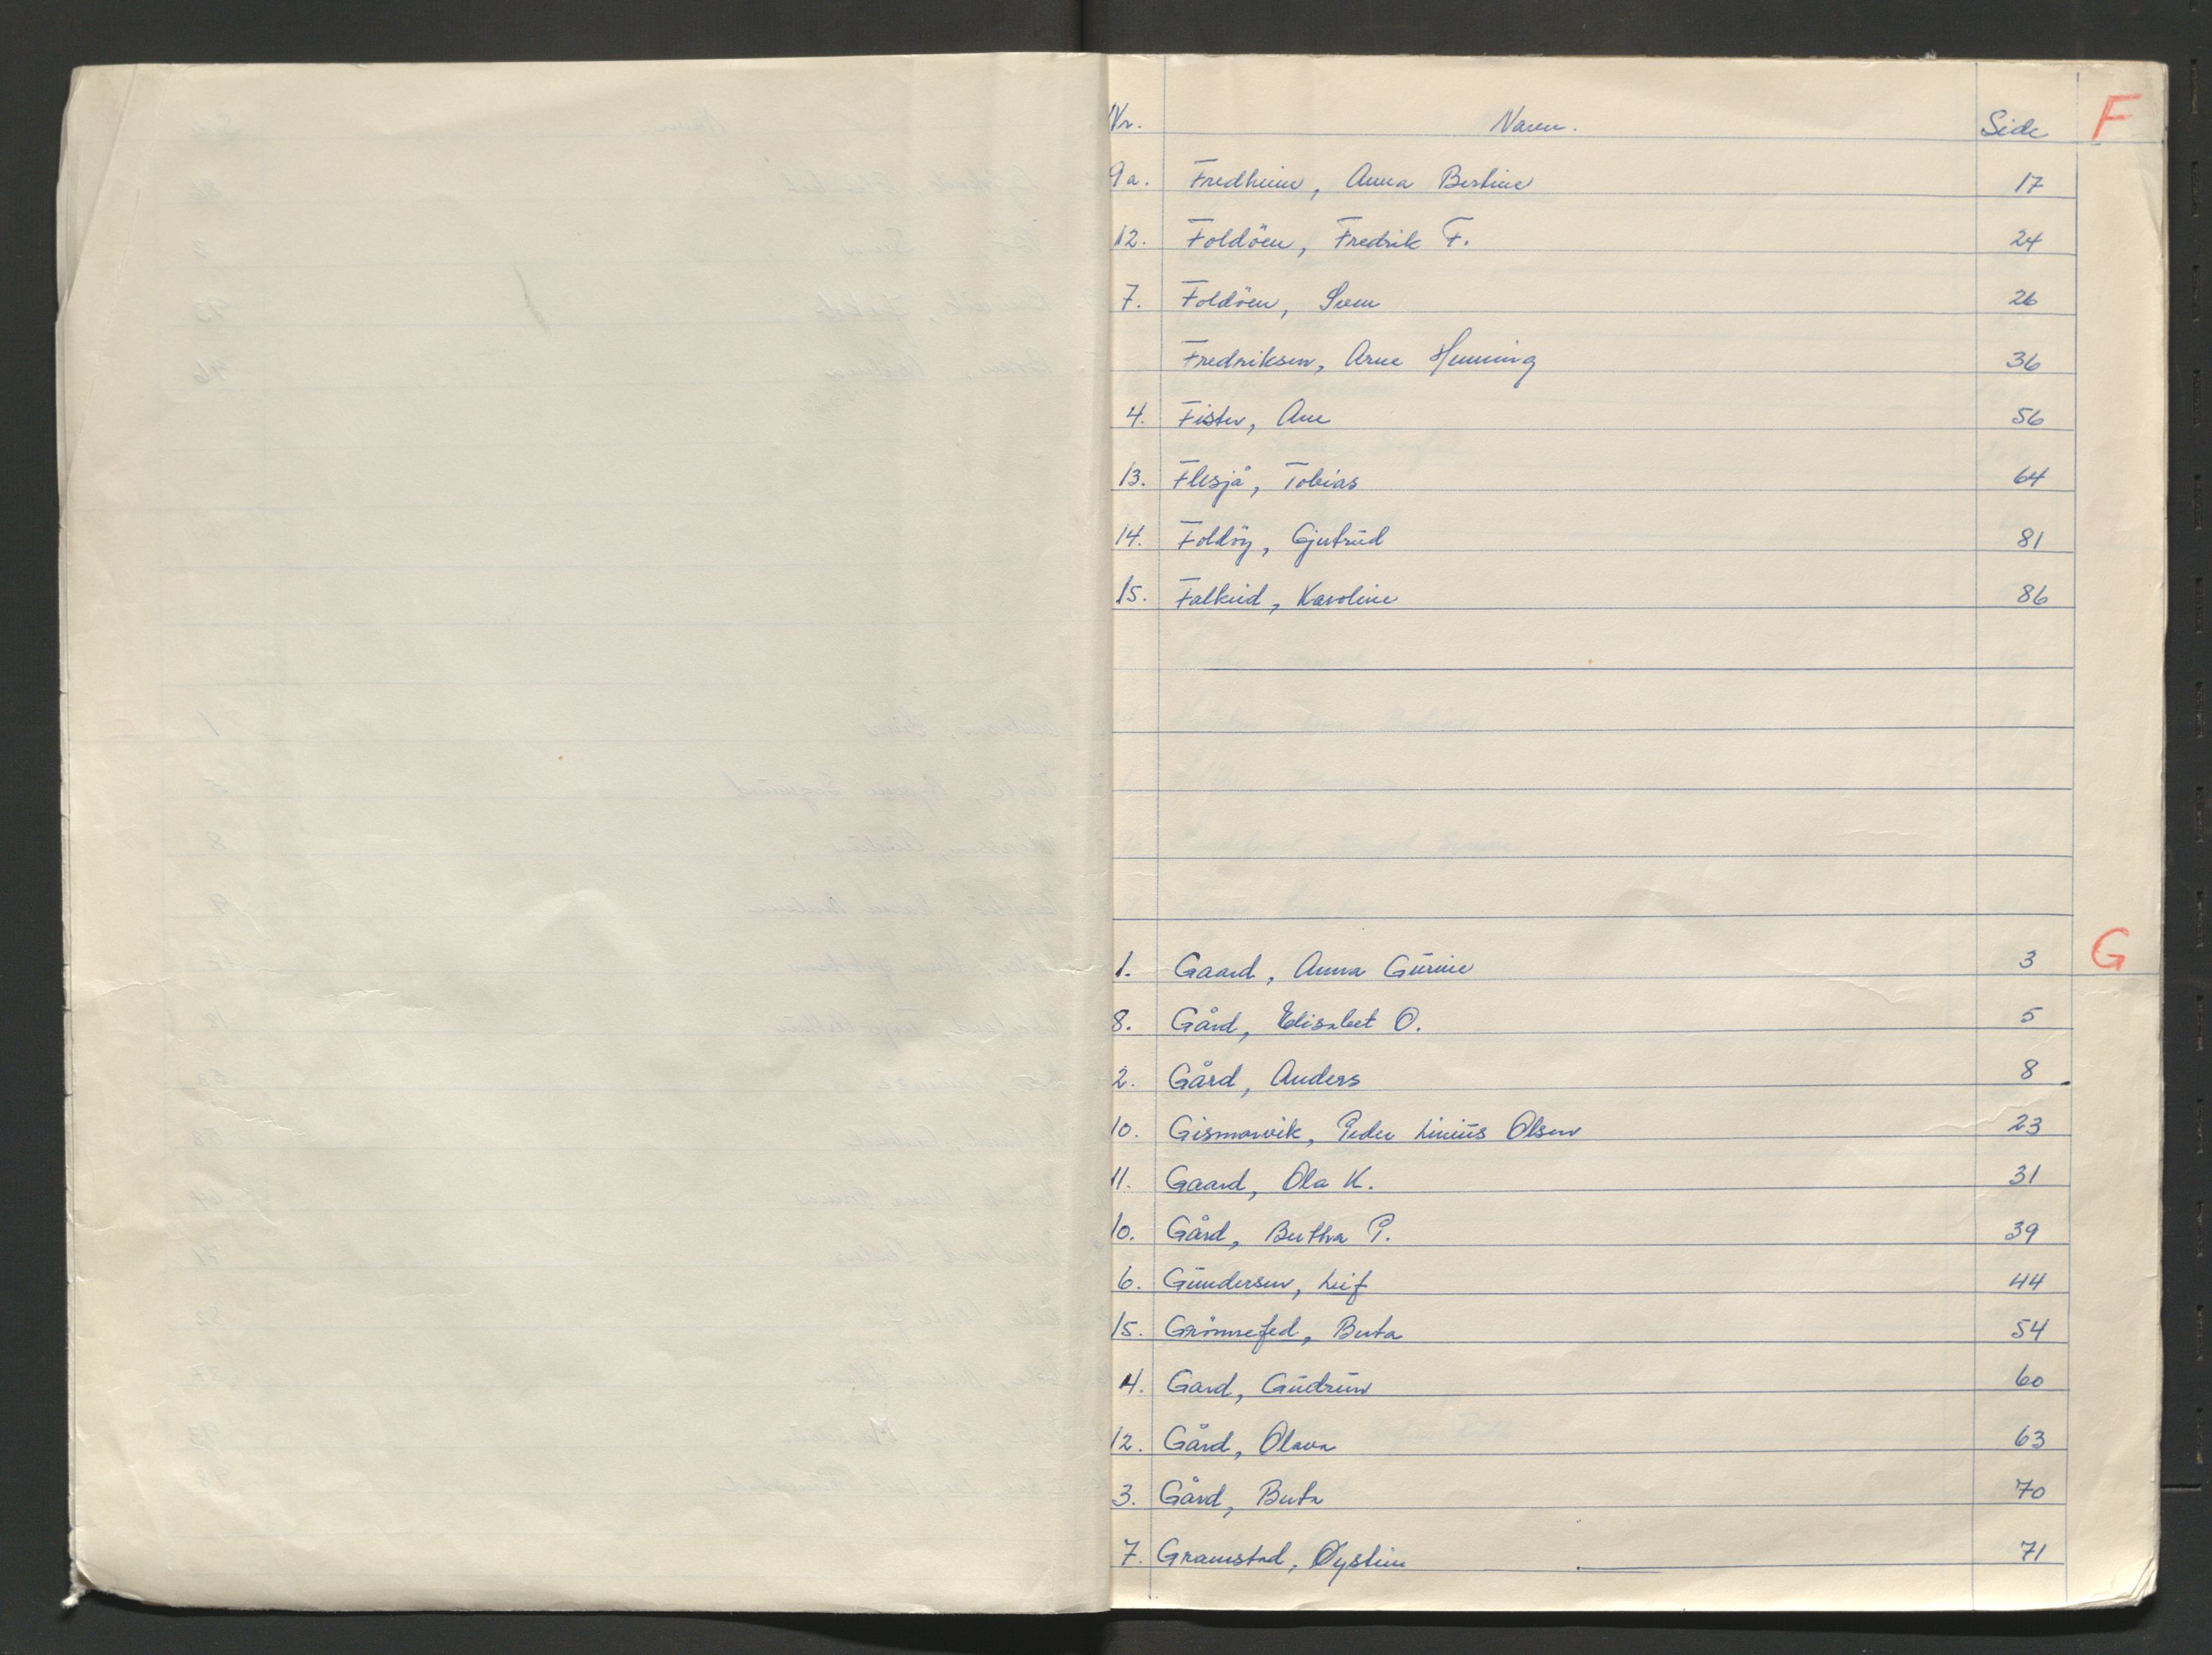 Nr. Navn. Side F
9a. Fredheim, Anna Bertine 17
12. Foldöen, Fredrik F. 24
7. Foldöen, Sven 26
Fredriksen, Arne Henning 36
4. Fister, Ane 56
13. Flesjå, Tobias 64
14. Foldöy, Gjertrud 81
15. Falkeid, Karoline 86
1. Gaard, Anna Gurine 3 G
8. Gård, Elisabet O. 5
2. Gård, Anders 8
10. Gismarvik, Peder Linius Olsen 23
11. Gaard, Ola K. 31
10. Gård, Bertha P. 39
6. Gundersen, Leif 44
15. Grönnefed, Berta 54
4. Gard, Gudrun 60
12. Gård, Olava 63
3. Gård, Berta 70
7. Gramstad, Øystein 71